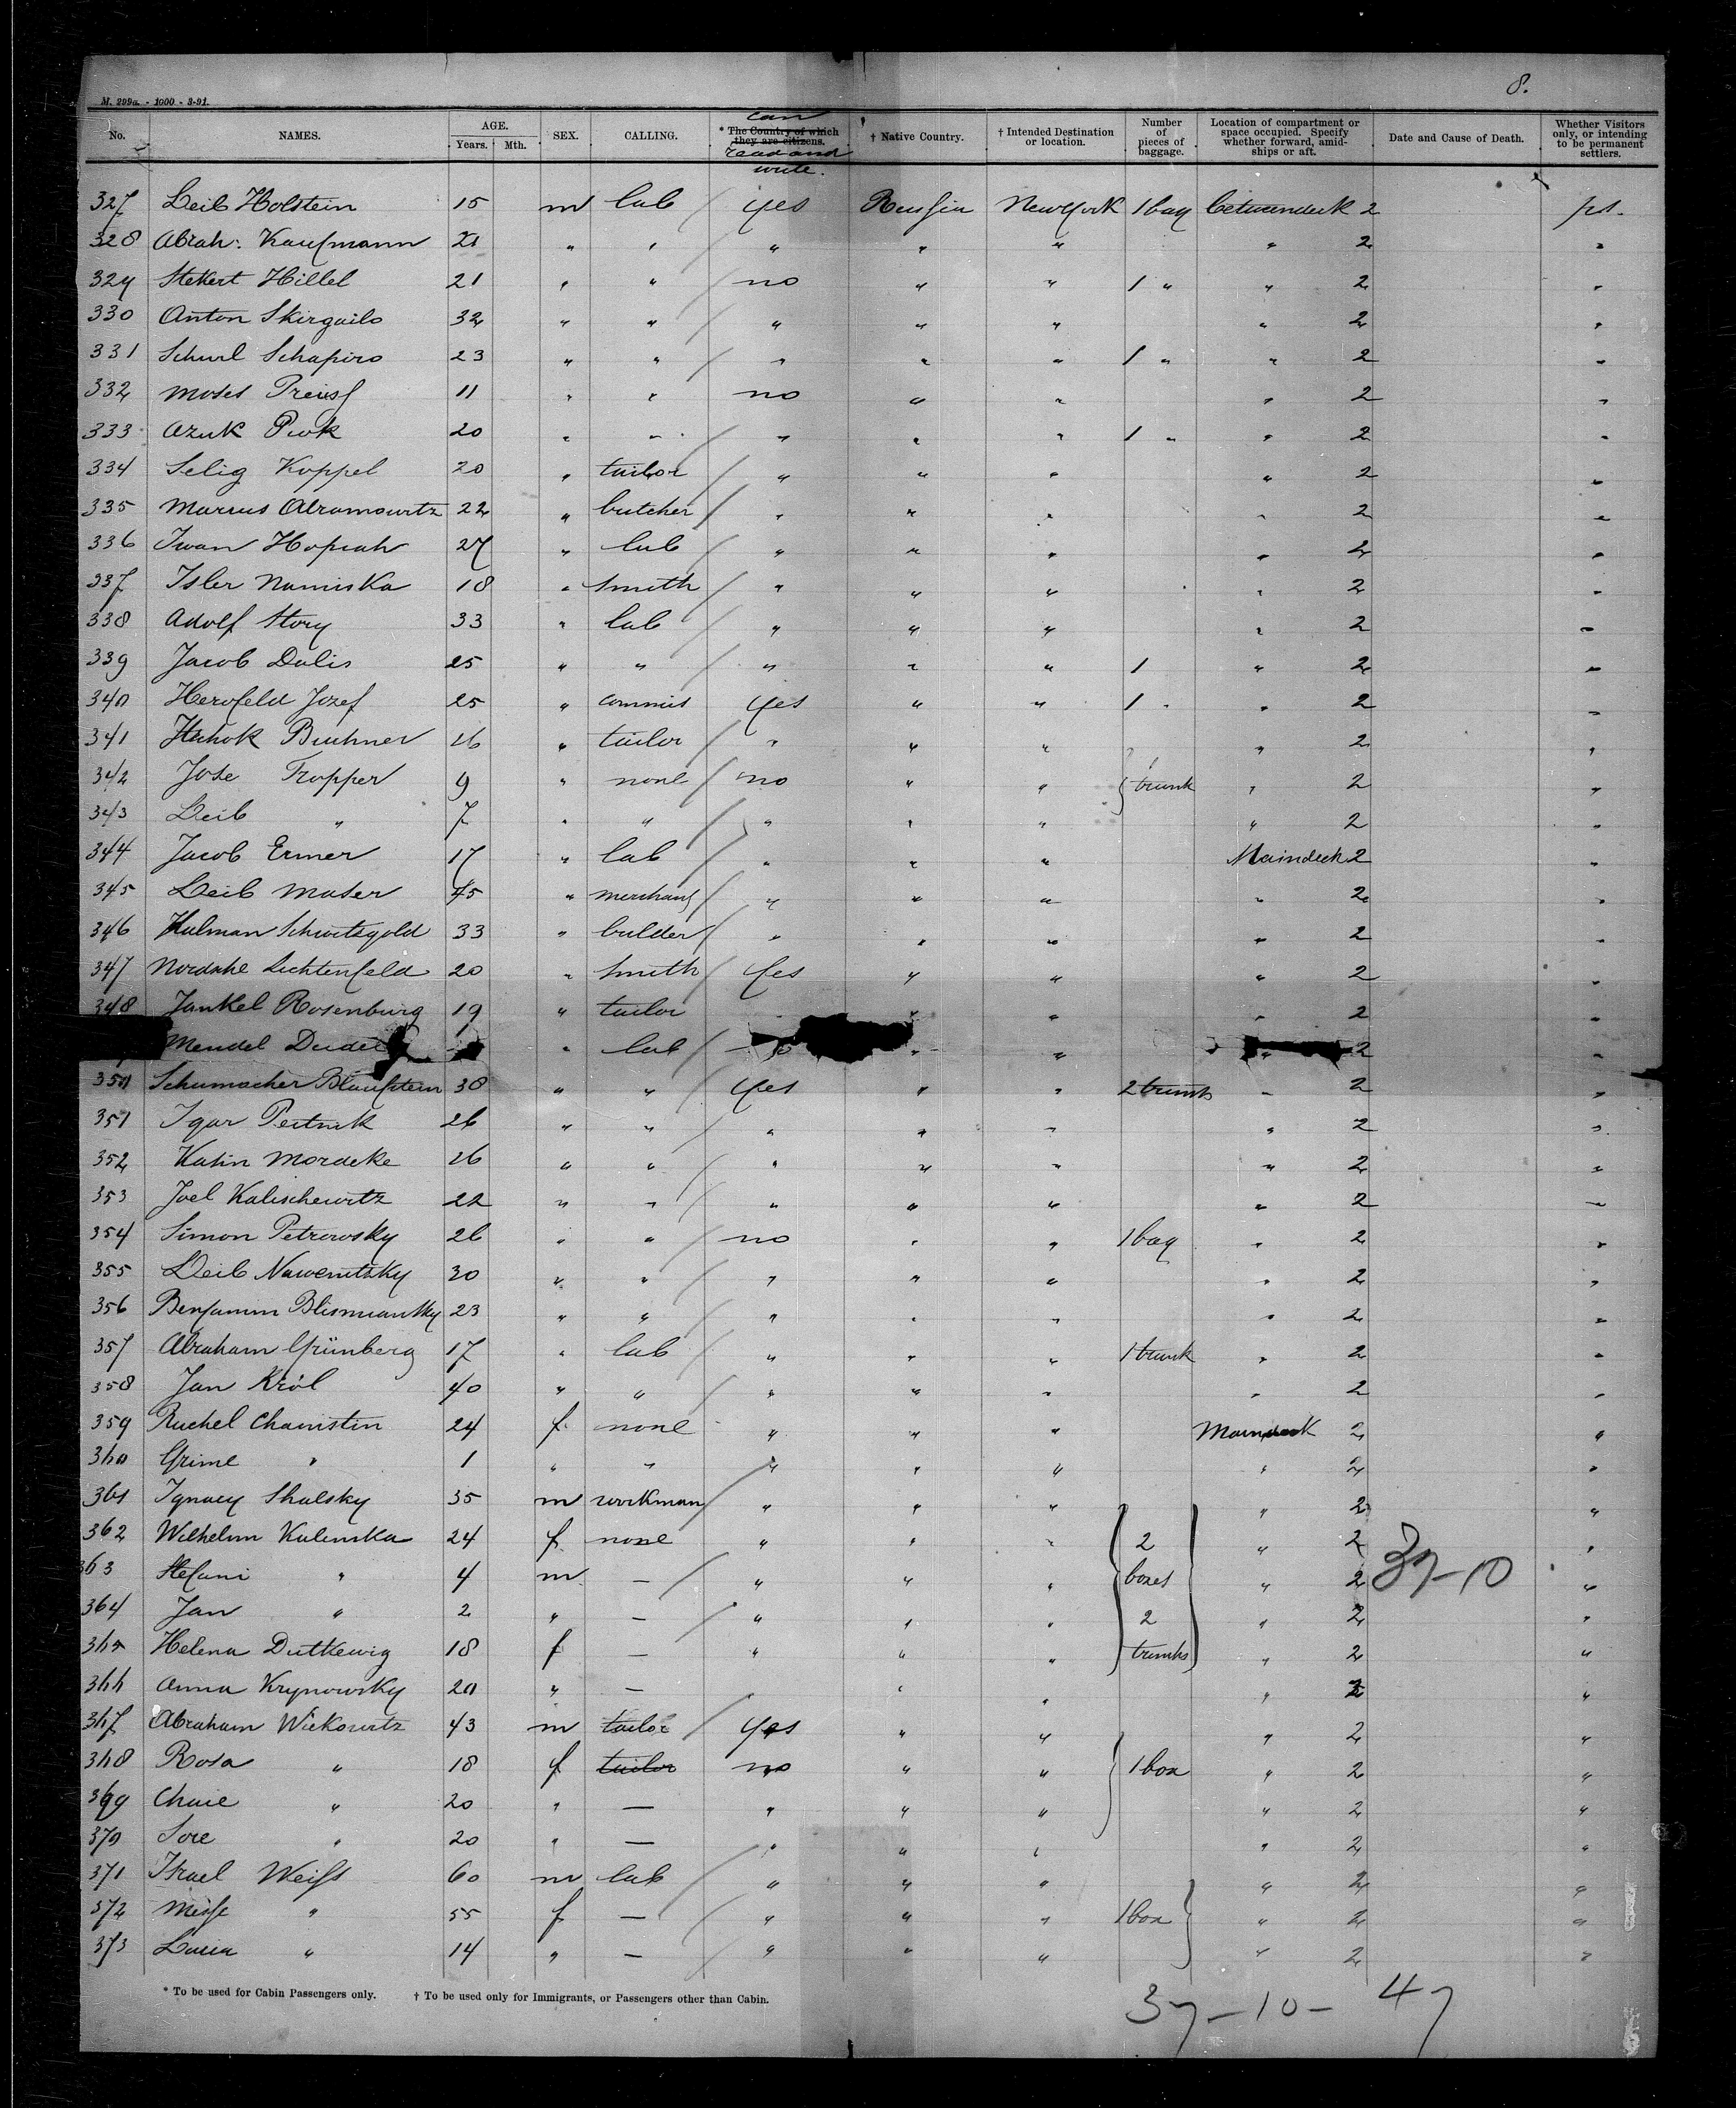 8.
M. 299a. - 1000 - 3-91.
No. NAMES. AGE. Years. Mth. SEX. CALLING. * The Country of which they are citizens. can read and write. † Native Country. † Intended Destination or location. Number of pieces of baggage. Location of compartment or space occupied. Specify whether forward, amidships or aft. Date and Cause of Death. Whether Visitors only, or intending to be permanent settlers.
327 Leib Holstein 15 m lab yes Russia New York 1 bag betweendeck 2
328 Abrah: Kaufmann 21 " " " " " " 2 "
329 Stekert Hillel 21 " " no " " 1 " " 2 "
330 Anton Skirgailo 32 " " " " " " 2 "
331 Schuel Schapiro 23 " " " " " 1 " " 2 "
332 Moses Preiss 11 " " no " " " 2 "
333 Azuk 20 " " " " " 1 " " 2 "
334 Selig Koppel 20 " tailor " " " " 2 "
335 Marcus Abramowitz 22 " butcher " " " " 2 "
336 Iwan 27 " lab " " " " 2 "
337 Isler Namiska 18 " smith " " " " 2 "
338 Adolf Story 33 " lab " " " " 2 "
339 Jacob Dulis 25 " " " " " 1 " 2 "
340 Herofeld Jozef 25 " commis yes " " 1 " " 2 "
341 Bruhner 26 " tailor " " " " 2 "
342 Jose Tropper 9 " none no " " 1 trunk " 2 "
343 Leib " 7 " " " " " " 2 "
344 Jacob Ermer 17 " lab " " " Maindeck 2 "
345 Leib Maser 45 " merchant " " " " 2 "
346 Hulman Schwitzgold 33 " builder " " " " 2 "
347 Lichtenfeld 20 " smith yes " " " 2 "
348 Jankel Rosenburg 19 " tailor " " " 2 "
Mendel " lab " " " 2 "
350 Schumacher Blaustein 38 " " yes " " 2 trunks " 2 "
351 Igar 26 " " " " " " 2 "
352 Kahn Mordeke 26 " " " " " " 2 "
353 Joel Kalischewitz 22 " " " " " " 2 "
354 Simon Petrowsky 26 " " no " " 1 bag " 2 "
355 Leib Nawenitzky 30 " " " " " " 2 "
356 Benjamin 23 " " " " " " 2 "
357 Abraham Grünberg 17 " lab " " " 1 trunk " 2 "
358 Jan Król 40 " " " " " " 2 "
359 Ruchel Chamistin 24 f none " " " Maindeck 2 "
360 Grime " 1 " " " " " " 2 "
361 Ignacy Shalsky 35 m workman " " " " 2 "
362 Wilhelm Kulinska 24 f none " " " 2 " 2 "
363 Stefani " 4 m — " " " boxes " 2 37-10 "
364 Jan " 2 " — " " " 2 " 2 "
365 Helena Dutkewig 18 f — " " " trunks " 2 "
366 Anna Krynowsky 20 " — " " " " 2 "
367 Abraham Wickowitz 43 m tailor yes " " " 2 "
368 Rosa " 18 f tailor no " " 1 box " 2 "
369 Chaie " 20 " — " " " " 2 "
370 Sore " 20 " — " " " " 2 "
371 Israel Weiss 60 m lab " " " " 2 "
372 " 55 f — " " " 1 box " 2 "
373 " 14 " — " " " " 2 "
* To be used for Cabin Passengers only. † To be used only for Immigrants, or Passengers other than Cabin.
37-10- 47